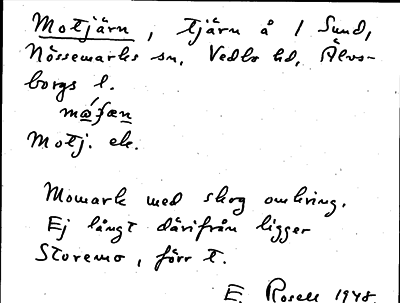 Motjärn, tjärn å 1 Sund,
Nössemarks sn, Vedbo hd, Älvs-
borgs l.
Motj. ek.
Momark med skog omkring.
Ej långt därifrån ligger
Storemo, förr t.
E. Rosell 1948